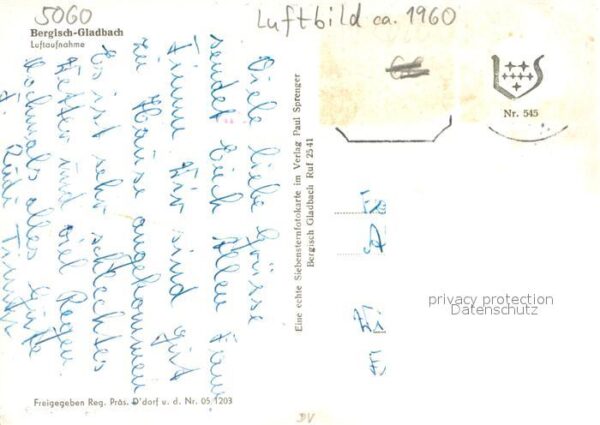 5060
Luftbild ca. 1960
Bergisch-Gladbach
Luftaufnahme
Nr. 545
Viele liebe Grüsse
sendet Euch Allen Fam.
Wir sind gut
zu Hause angekommen
Es ist sehr schlechtes
Wetter und viel Regen
Nochmals alles Gute
Eine echte Siebensternfotokarte im Verlag Paul Sprenger
Bergisch Gladbach Ruf 2541
privacy protection
Datenschutz
Freigegeben Reg. Präs. D'dorf u. d. Nr. 05/1203
DV